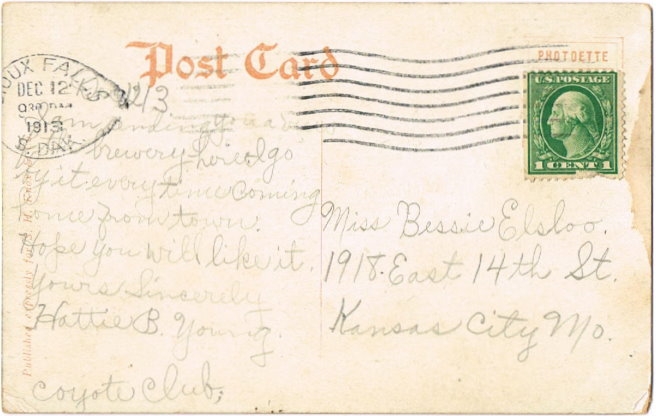 Post Card
PHOTOETTE
SIOUX FALLS
DEC 12
930 PM
1913
S. DAK.
U.S. POSTAGE
1 CENT 1
am sending you a
brewery here I go
by it every time coming
home from town.
Hope you will like it.
Yours Sincerely
Hattie B. Young.
Coyote Club,
Miss Bessie Elsloo.
1918. East 14th St.
Kansas City Mo.
Published